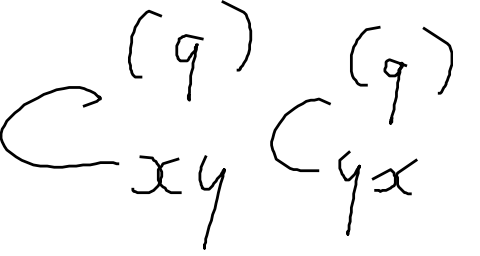 C_{xy}^{(q)} C_{yx}^{(q)}